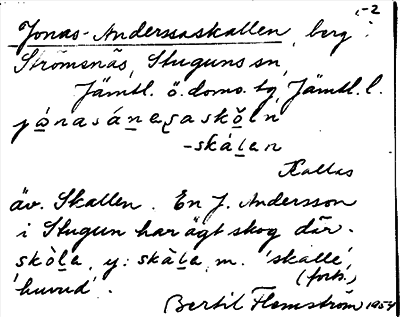 -2
Jonas-Anderssaskallen, berg i
Strömsnäs, Stuguns sn,
Jämtl. ö. doms. tg, Jämtl. l.
-skálan
Kallas
äv. Skallen. En J. Andersson
i Stugun har ägt skog där.
skòla, y: skàla, m. 'skalle',
'huvud'.
(forts.)
Bertil Flemström 1954